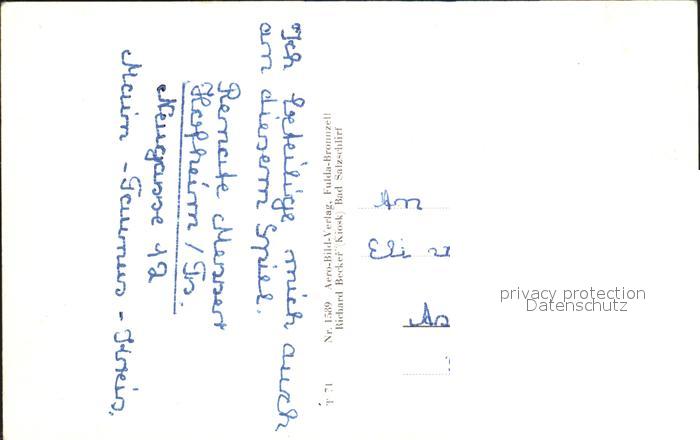 Ich beteilige mich auch
an diesem Spiel.
Renate Messert
Hofheim / Ts.
Neugasse 12
Main - Taunus - Kreis.
T 71 Nr. 1589 Aero-Bild-Verlag, Fulda-Bronnzell
Richard Becker (Kiosk) Bad Salzschlirf
An
Eli
privacy protection
Datenschutz